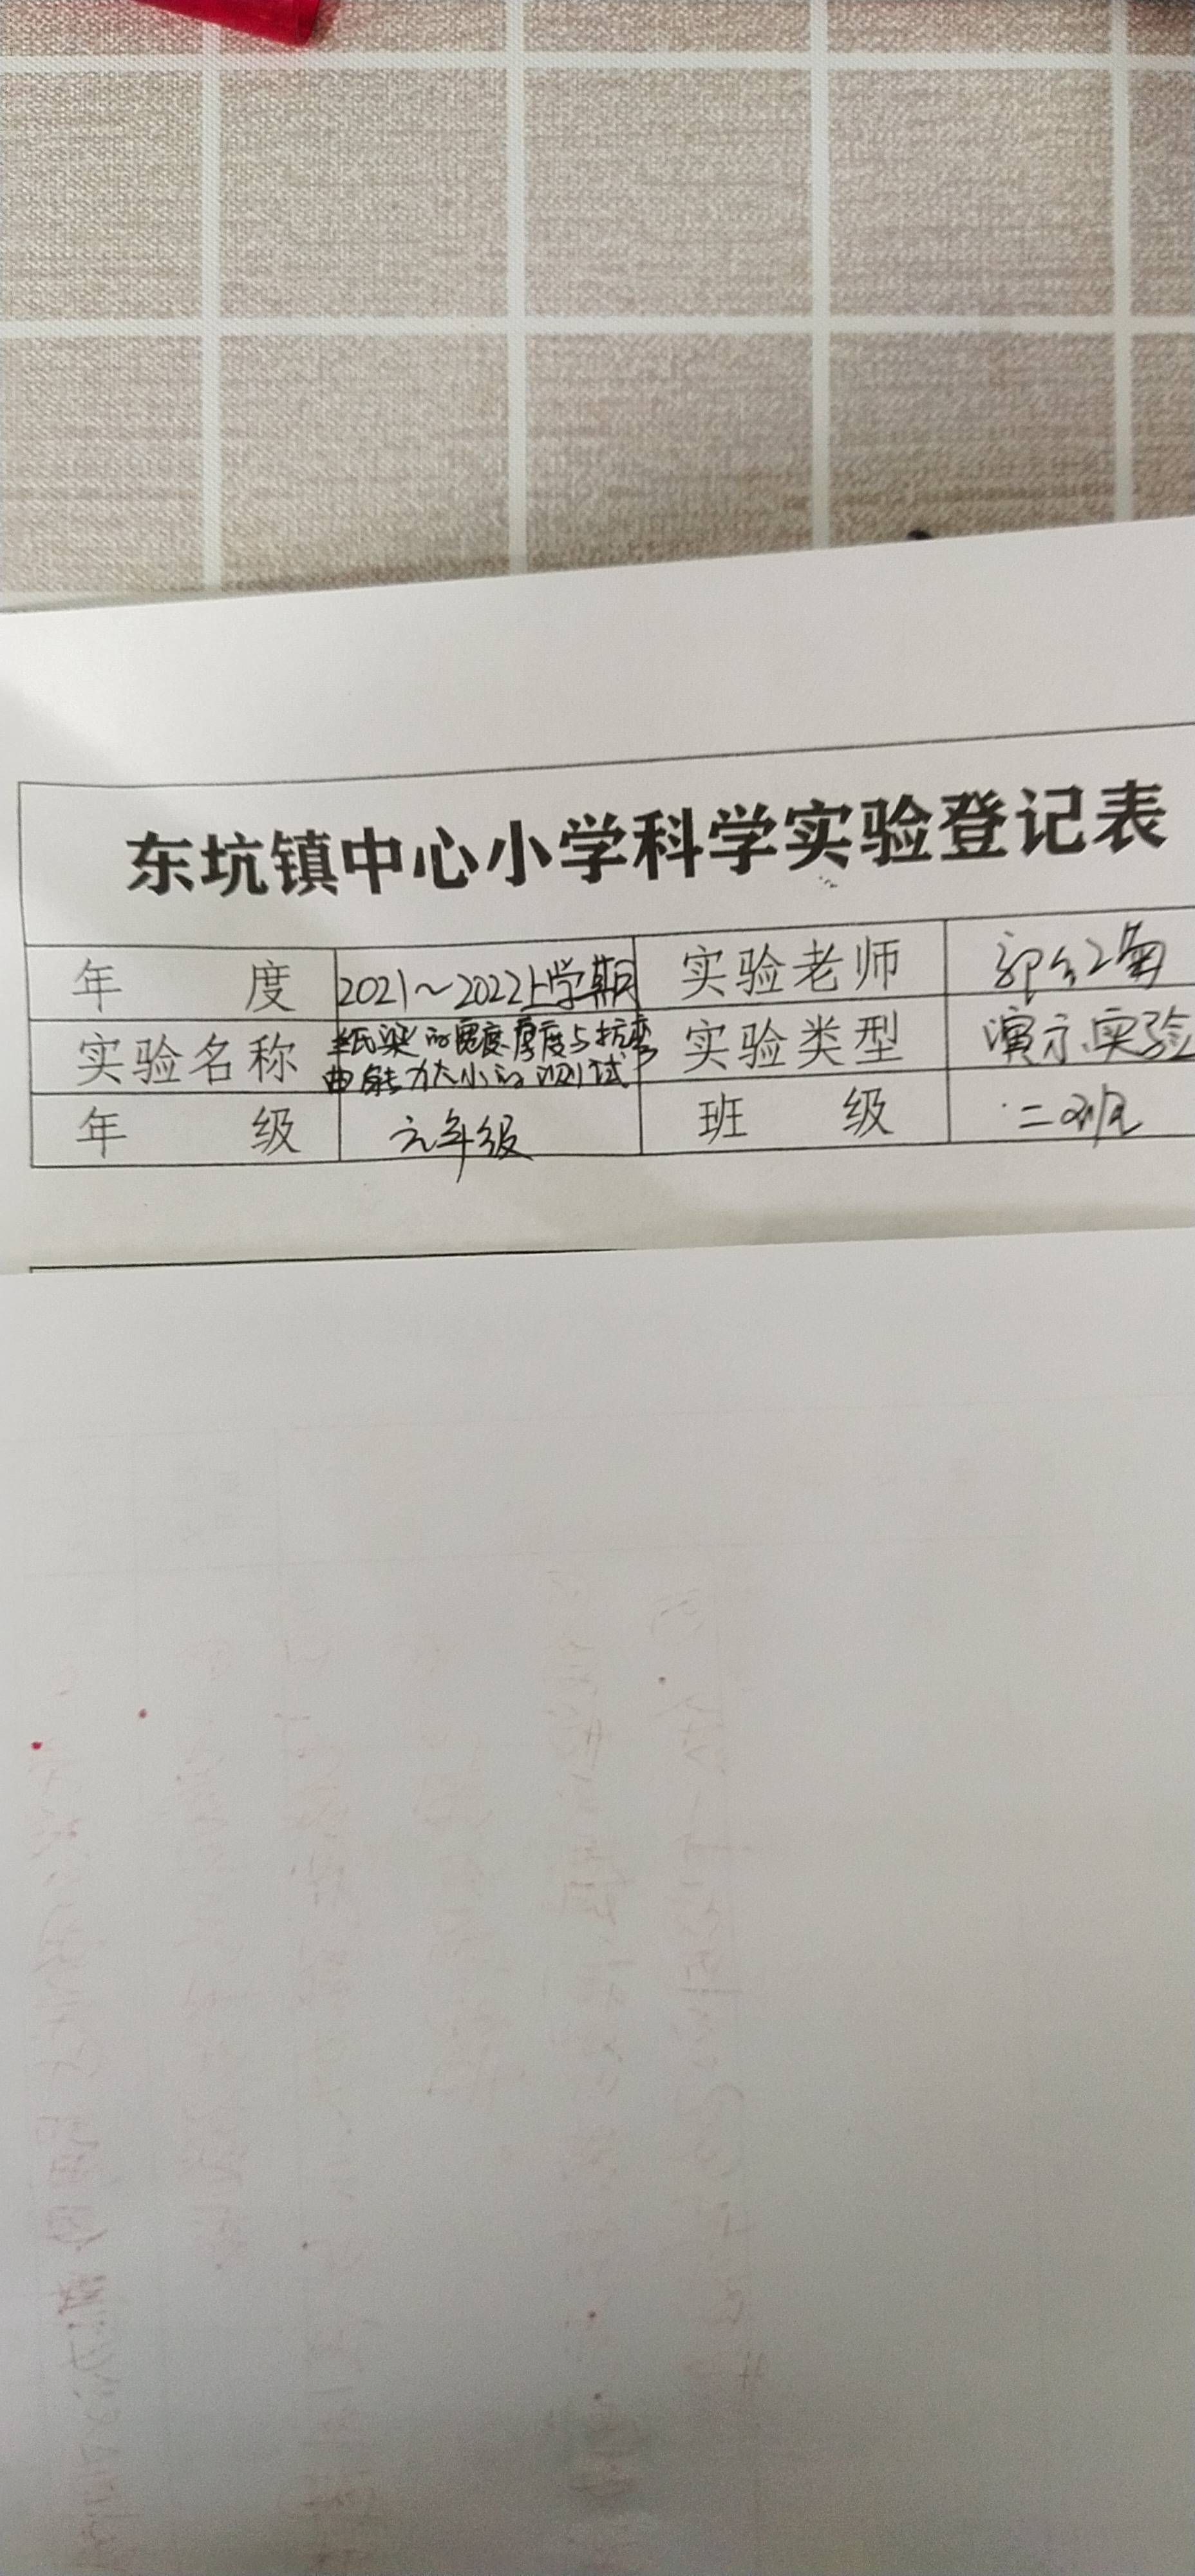 东坑镇中心小学科学实验登记表
年 度 2021～2022上学期 实验老师 郭红菊
实验名称 纸梁的宽度、厚度与抗弯曲能力大小的测试 实验类型 演示实验
年 级 六年级 班 级 二班